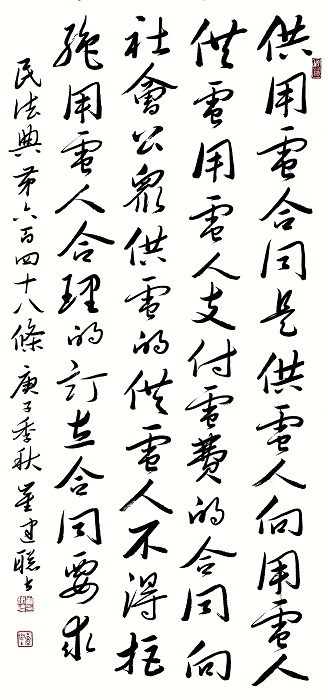 供用電合同是供電人向用電人
供電用電人支付電費的合同向
社會公衆供電的供電人不得拒
絶用電人合理的訂立合同要求
民法典第六百四十八條 庚子季秋 崔建聯書